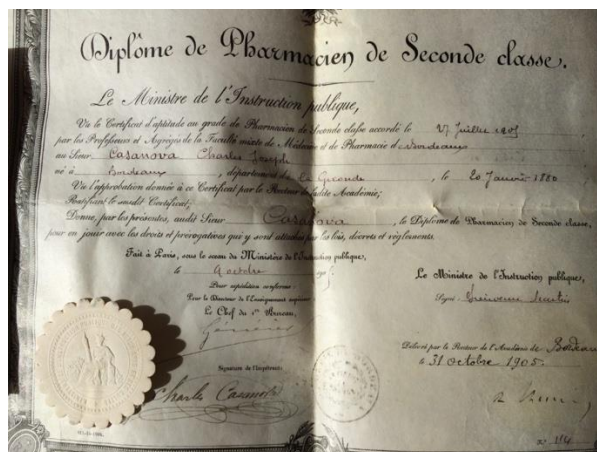 Diplôme de Pharmacien de Seconde classe.
Le Ministre de l'Instruction publique,
Vu le Certificat d'aptitude au grade de Pharmacien de Seconde classe accordé le 27 Juillet 1905
par les Professeurs et Agrégés de la Faculté mixte de Médecine et de Pharmacie d Bordeaux
au Sieur Casanova Charles Joseph
né à Bordeaux, département de la Gironde, le 20 Janvier 1880
Vu l'approbation donnée à ce Certificat par le Recteur de ladite Académie;
Ratifiant le susdit Certificat;
Donne, par les présentes, audit Sieur Casanova, le Diplôme de Pharmacien de Seconde classe,
pour en jouir avec les droits et prérogatives qui y sont attachés par les lois, décrets et règlements.
Fait à Paris, sous le sceau du Ministère de l'Instruction publique,
le 9 octobre
Pour expédition conforme:
Pour le Directeur de l'Enseignement supérieur
Le Chef du 1er Bureau,
Le Ministre de l'Instruction publique,
Signé
Délivré par le Recteur de l'Académie de Bordeaux
le 31 octobre 1905.
Signature de l'Impétrant:
Charles Casanova